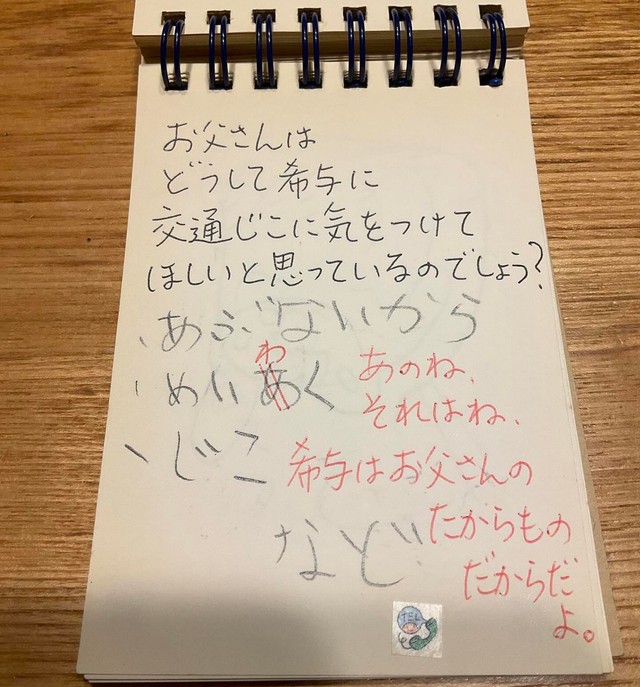 お父さんは
どうして希与に
交通じこに気をつけて
ほしいと思っているのでしょう?
、あぶないから
、めいあく
わ
、じこ
など
あのね、
それはね、
希与はお父さんの
たからもの
だからだ
よ。